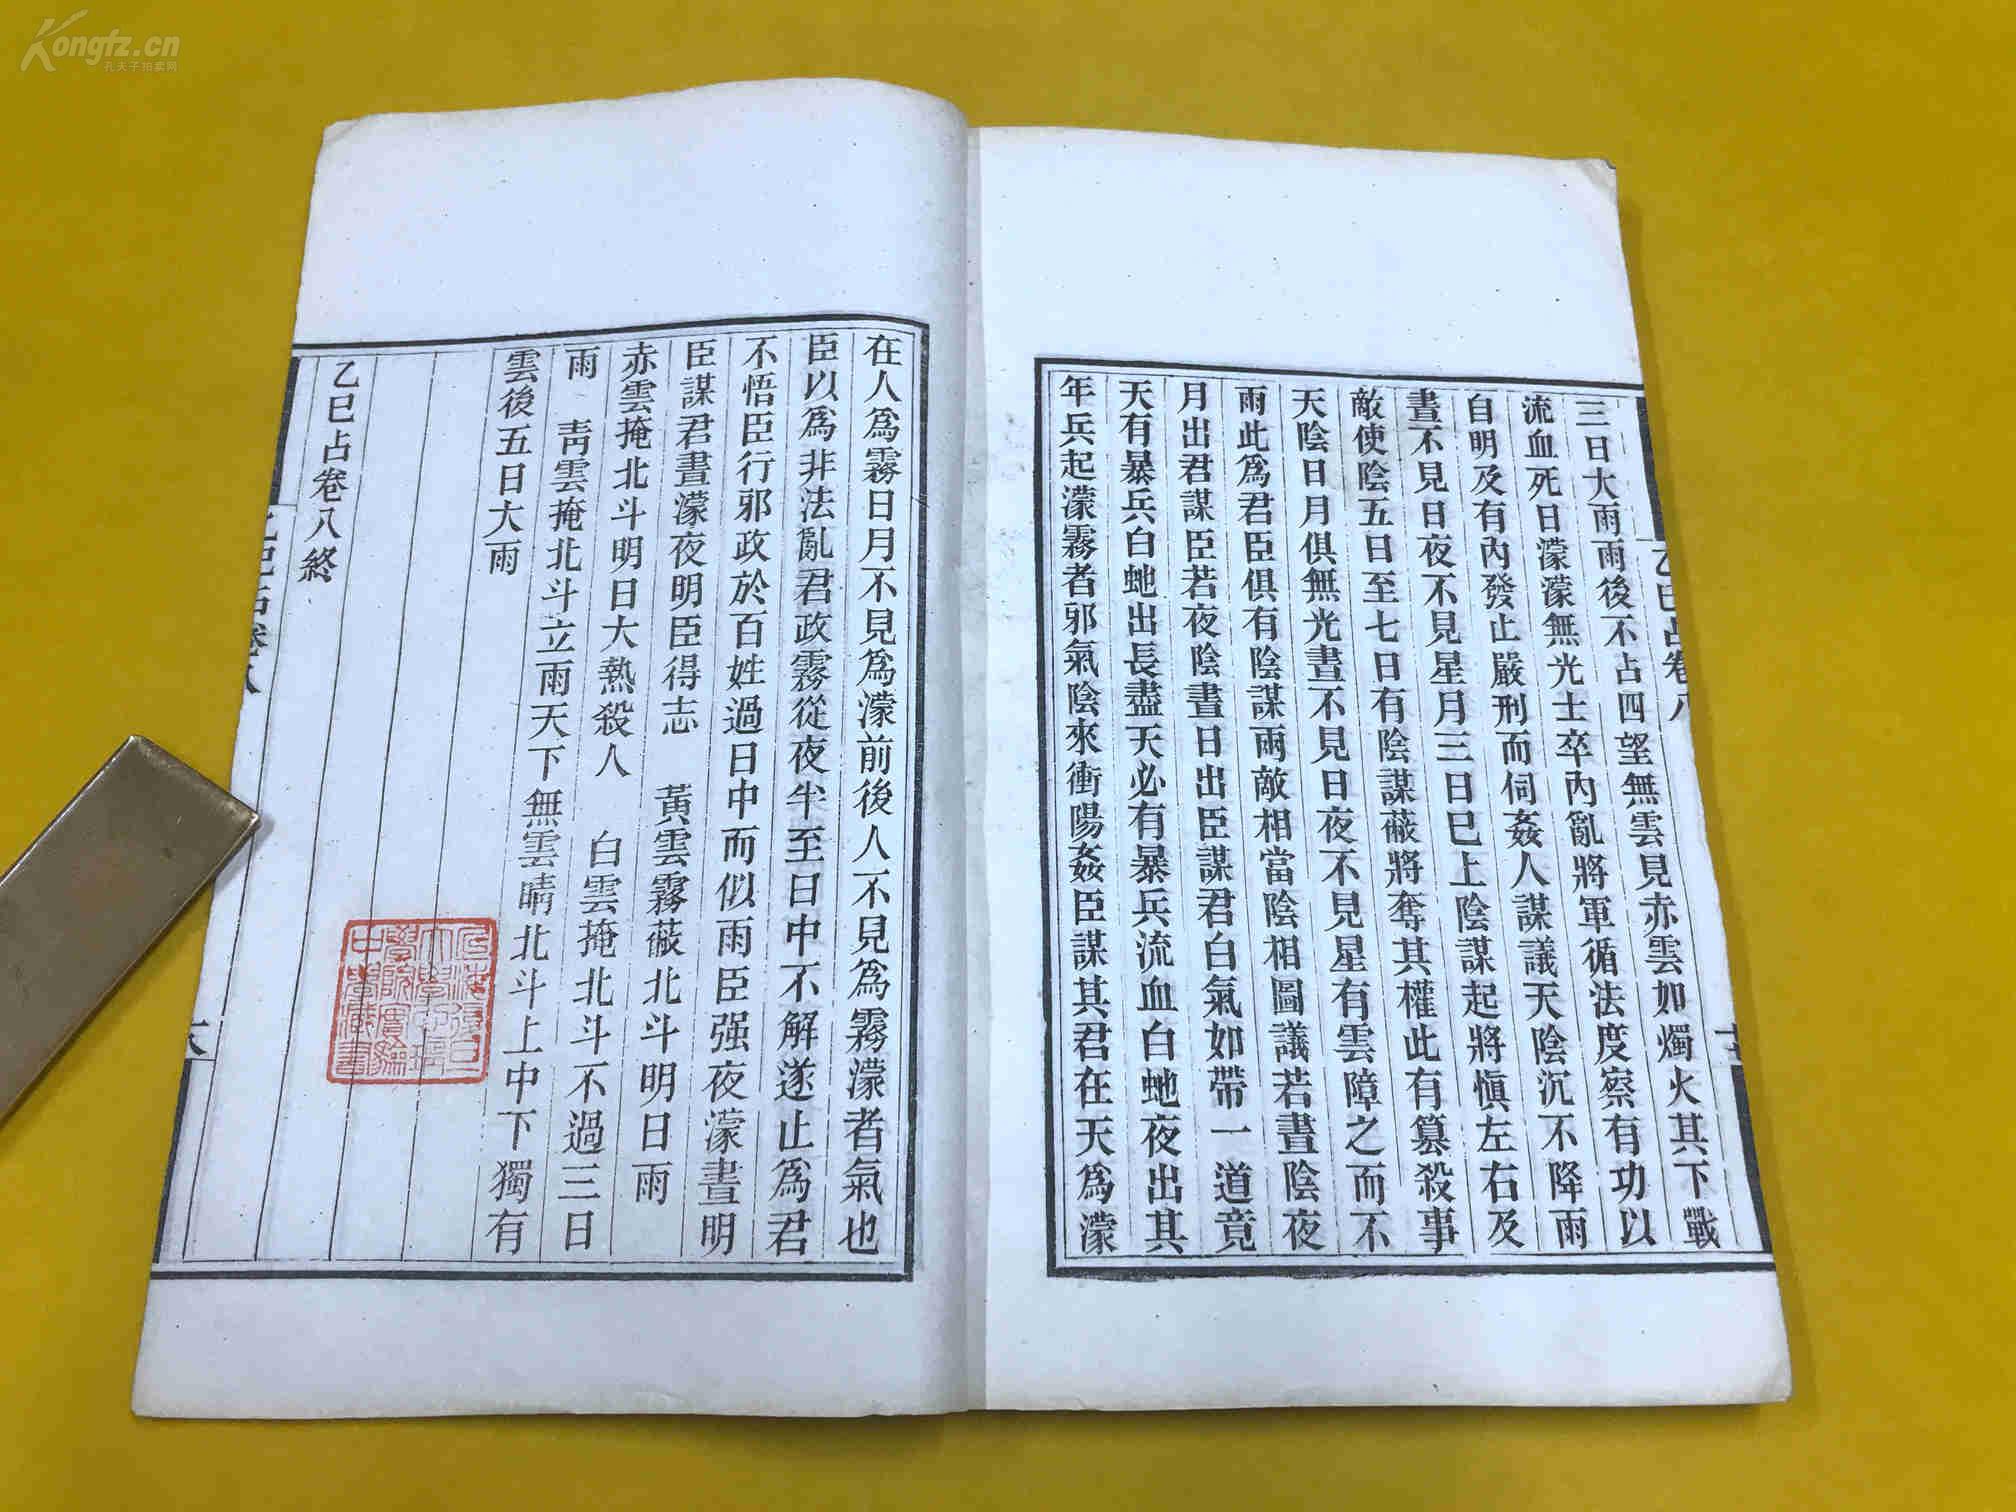 Kongfz.cn
孔夫子拍卖网
乙巳占卷八
三日大雨雨後不占四望無雲見赤雲如燭火其下戰
流血死日濛濛無光士卒內亂將軍循法度察有功以
自明及有內發止嚴刑而伺姦人謀議天陰沉不降雨
晝不見日夜不見星月三日巳上陰謀起將愼左右及
敵使陰五日至七日有陰謀蔽將奪其權此有篡殺事
天陰日月俱無光晝不見日夜不見星有雲障之而不
雨此爲君臣俱有陰謀兩敵相當陰相圖議若晝陰夜
月出君謀臣若夜陰晝日出臣謀君白氣如帶一道竟
天有暴兵白虵出長盡天必有暴兵流血白虵夜出其
年兵起濛霧者邪氣陰來衝陽姦臣謀其君在天爲濛
在人爲霧日月不見爲濛前後人不見爲霧濛者氣也
臣以爲非法亂君政霧從夜半至日中不解遂止爲君
不悟臣行邪政於百姓過日中而似雨臣强夜濛晝明
臣謀君晝濛夜明臣得志 黃雲霧蔽北斗明日雨
赤雲掩北斗明日大熱殺人 白雲掩北斗不過三日
雨 靑雲掩北斗立雨天下無雲晴北斗上中下獨有
雲後五日大雨
乙巳占卷八終
乙巳占卷八
六